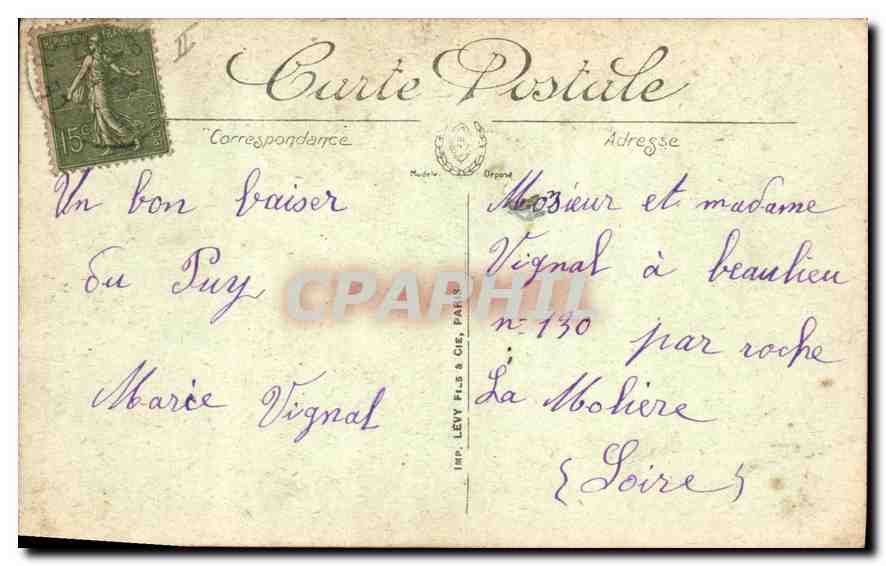 Carte Postale
Correspondance
Adresse
Modèle Déposé
15c
II
Un bon baiser
du Puy
Marie Vignal
IMP. LÉVY FILS & CIE, PARIS
Mosieur et madame
Vignal à beaulieu
n- 130 par roche
La Molière
(Loire)
CPAPHIL